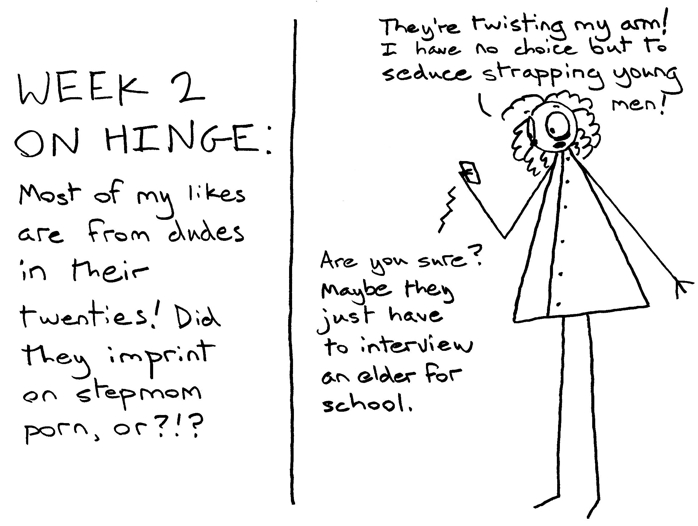 WEEK 2
ON HINGE:
Most of my likes
are from dudes
in their
twenties! Did
they imprint
on stepmom
porn, or?!?
They're twisting my arm!
I have no choice but to
seduce strapping young
men!
Are you sure?
Maybe they
just have
to interview
an elder for
school.